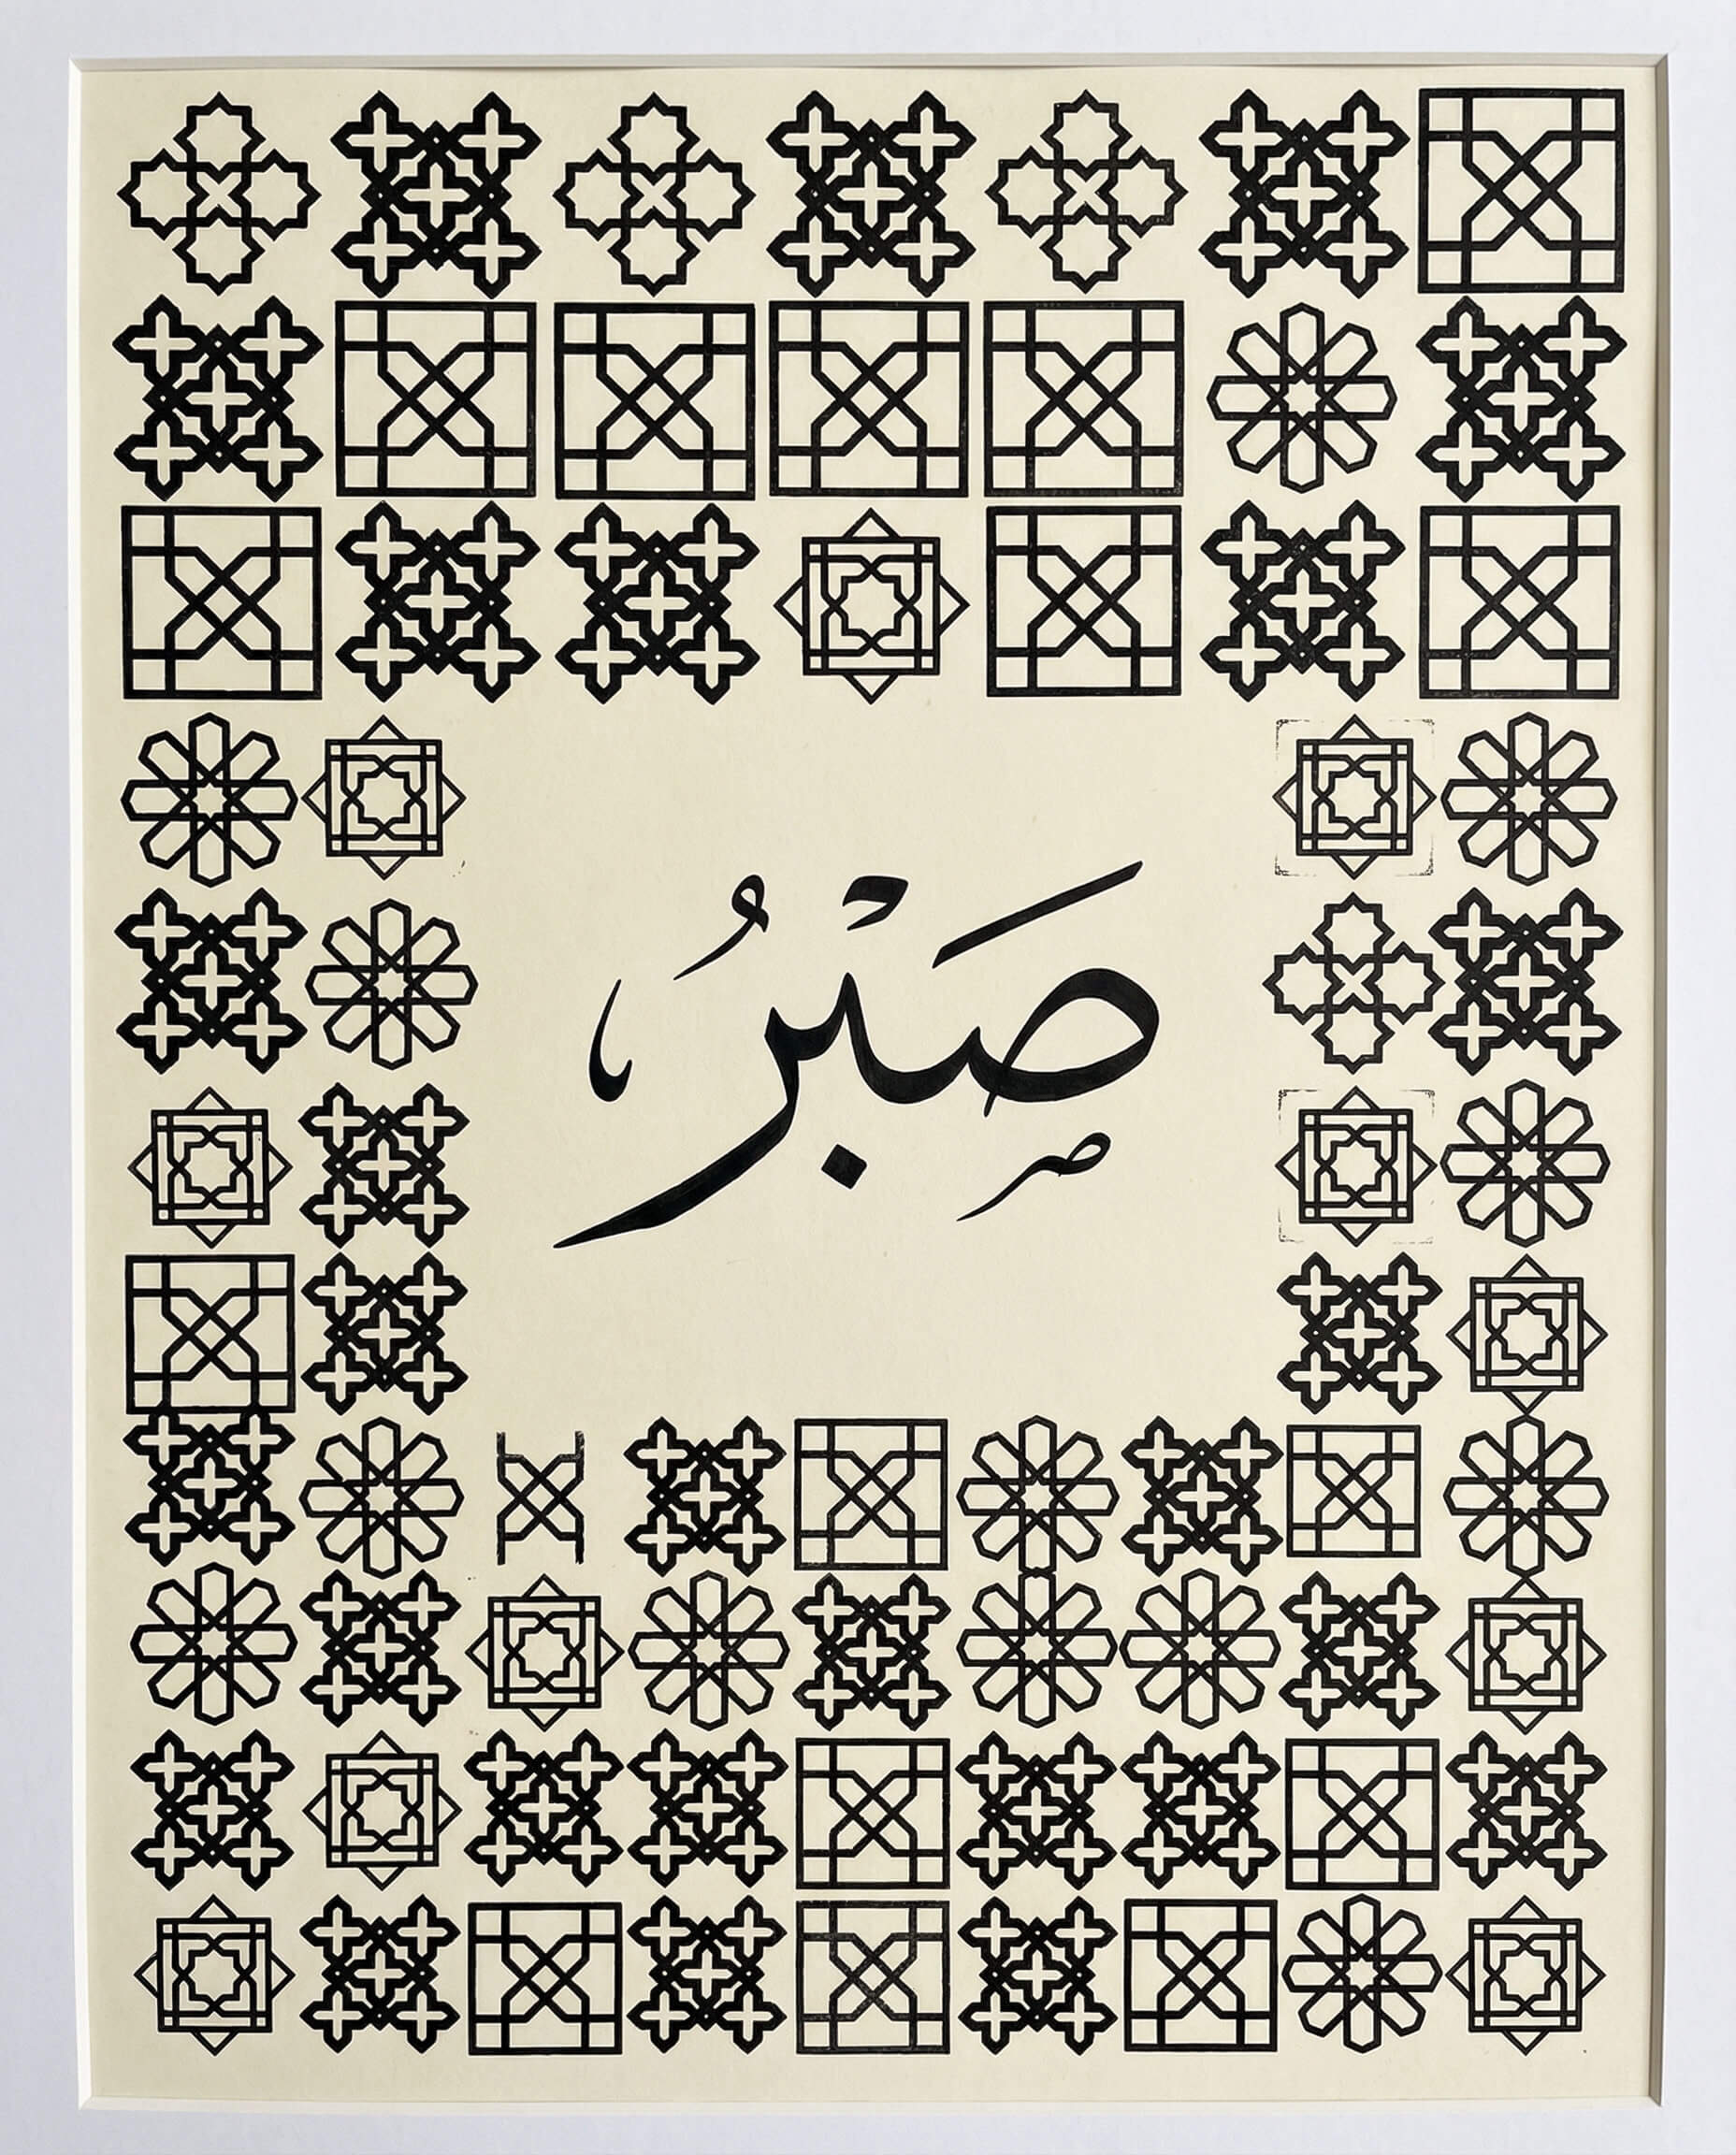 صَبْرُ